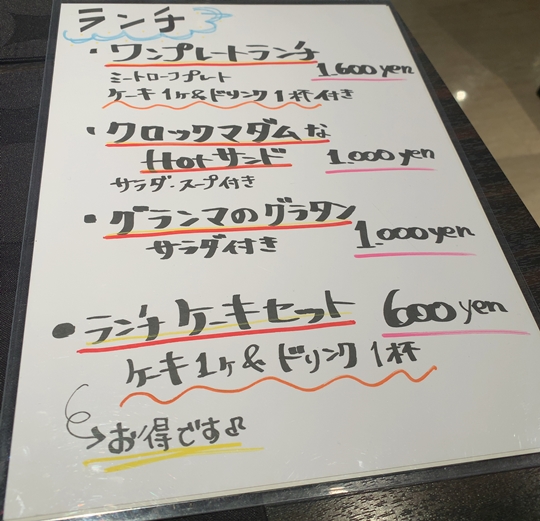 ランチ
・ワンプレートランチ
ミートローフプレート 1.600yen
ケーキ1ヶ&ドリンク1杯付き
・クロックマダムな
Hotサンド 1.000yen
サラダ・スープ付き
・グランマのグラタン
サラダ付き 1.000yen
●ランチケーキセット 600yen
ケーキ1ヶ&ドリンク1杯
→お得です♪